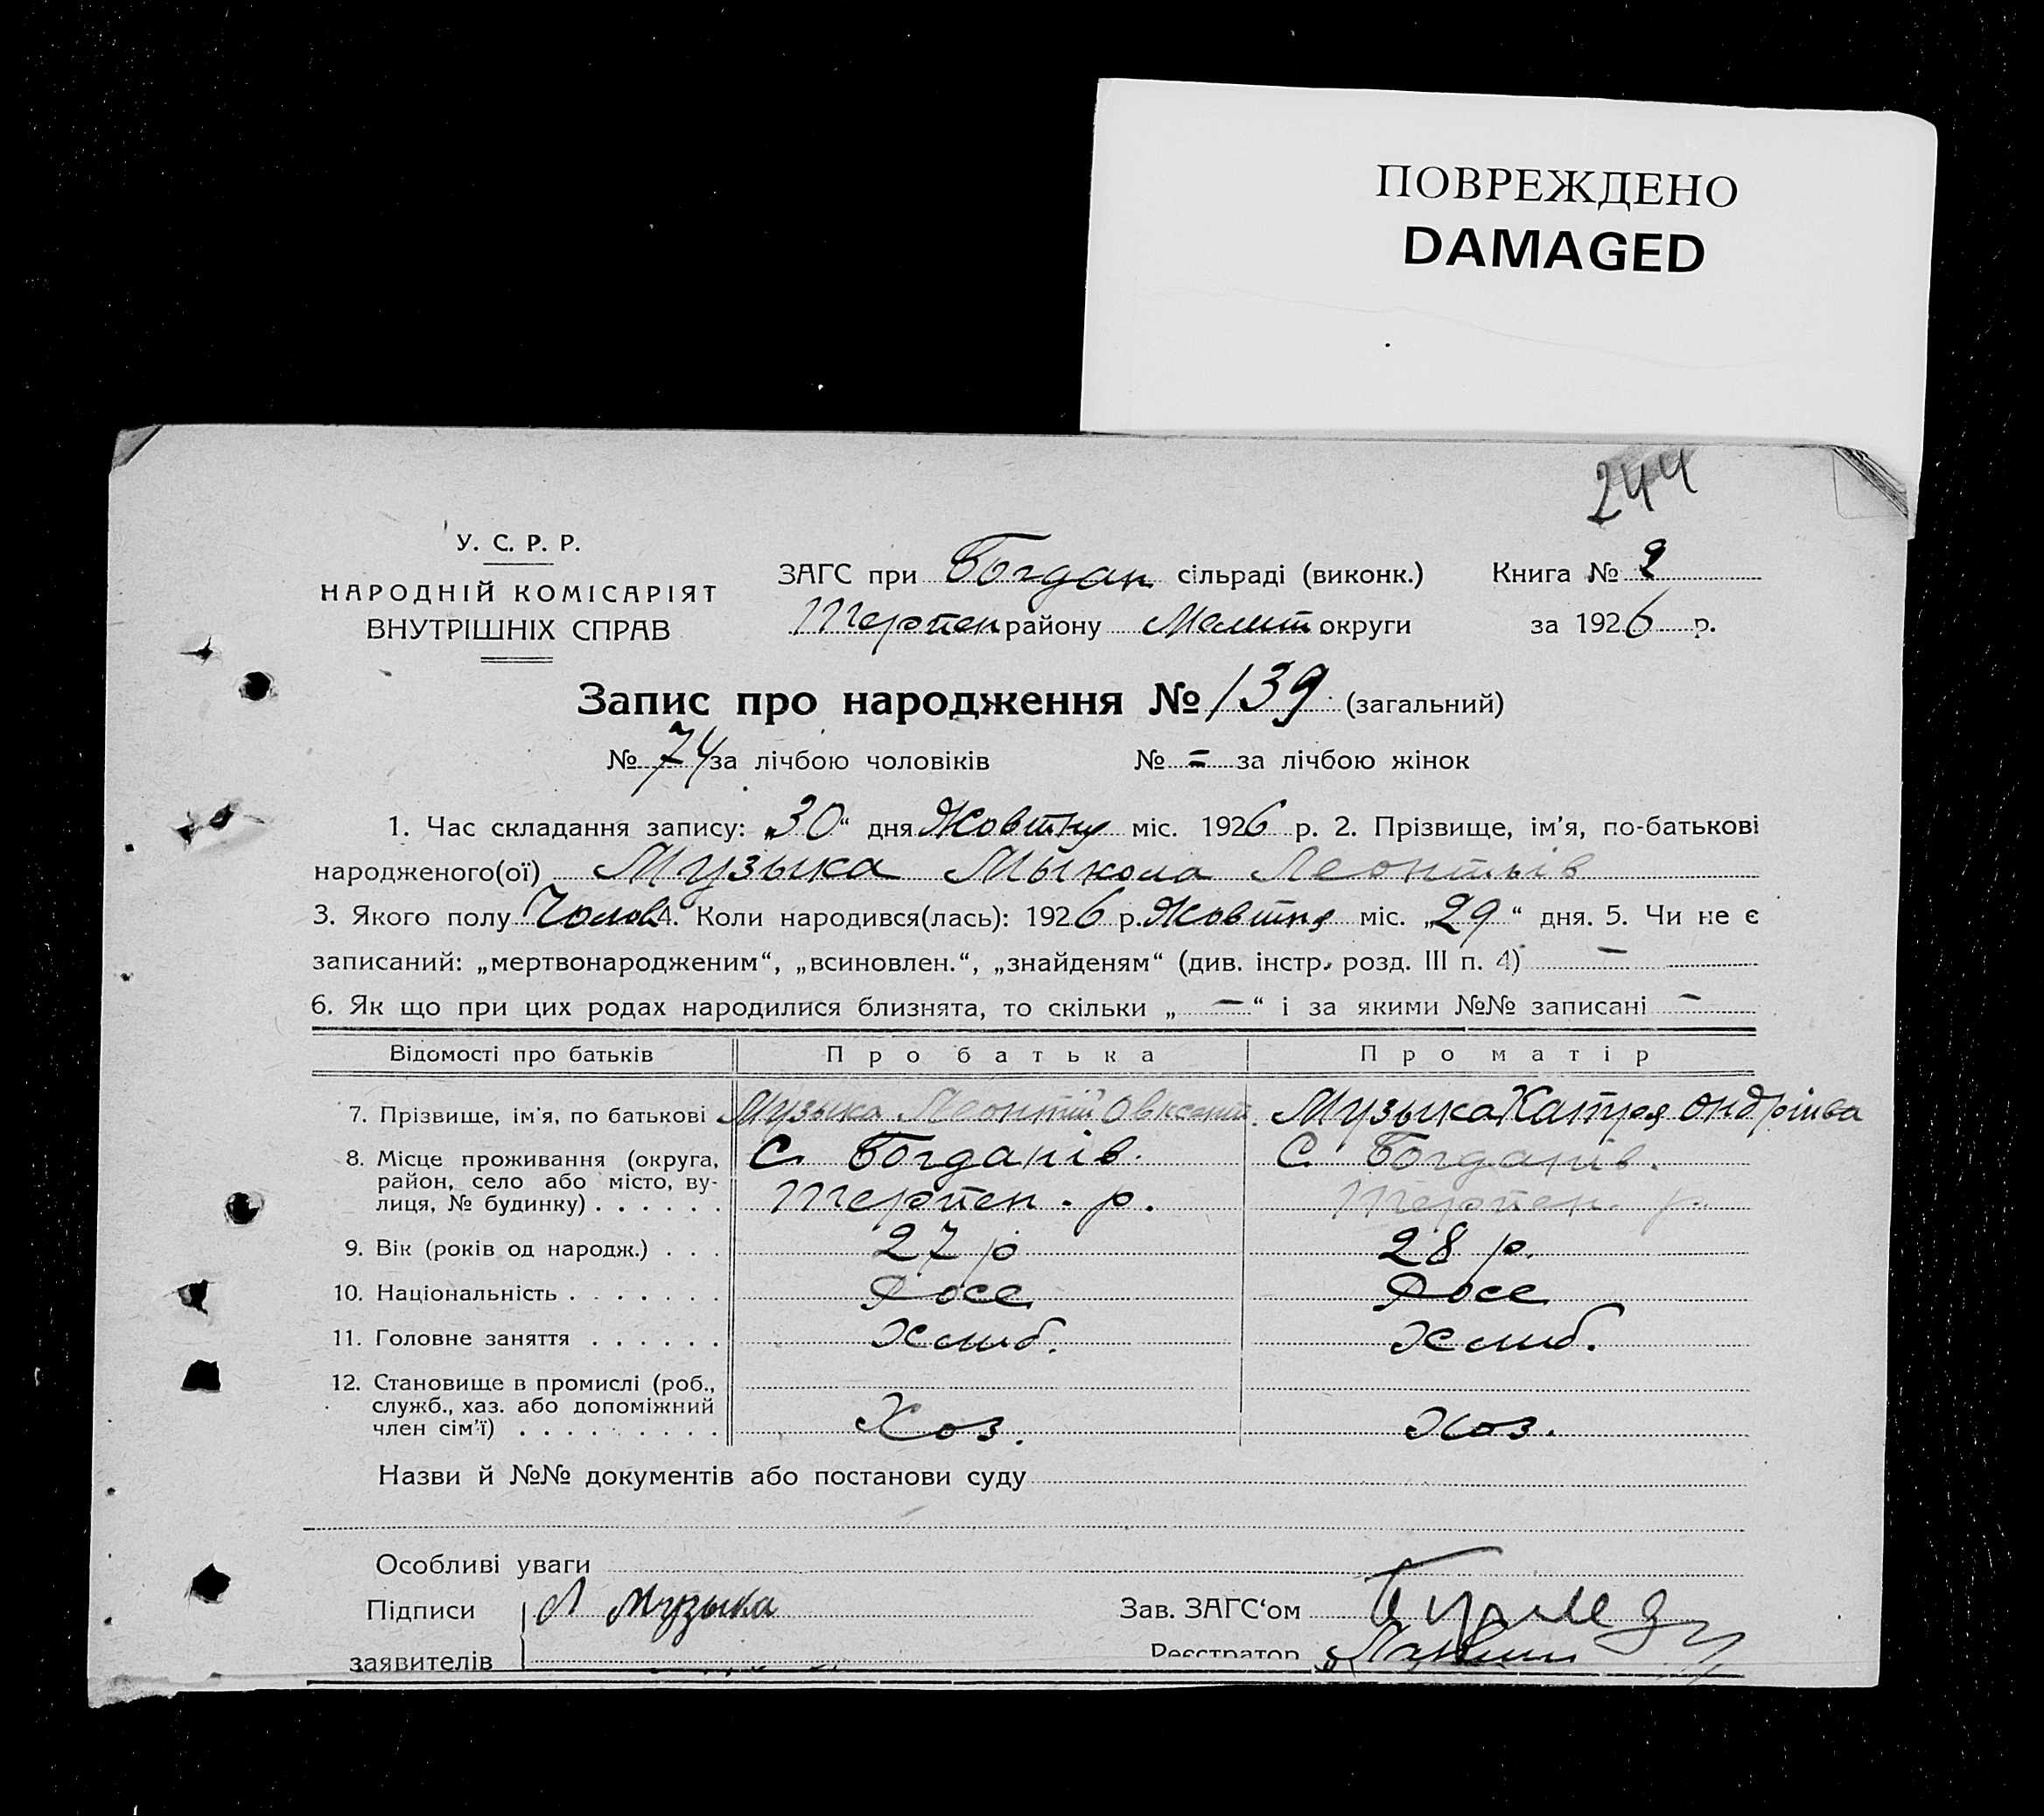 ПОВРЕЖДЕНО
DAMAGED
244
У. С. Р. Р.
НАРОДНІЙ КОМІСАРІЯТ
ВНУТРІШНІХ СПРАВ
ЗАГС при Богдан сільраді (виконк.) Книга № 2
Терпен району Мелит округи за 1926 р.
Запис про народження № 139 (загальний)
№ 74 за лічбою чоловіків № = за лічбою жінок
1. Час складання запису: „30“ дня Жовтня міс. 1926 р. 2. Прізвище, ім’я, по-батькові
народженого(ої) Музыка Мыкола Леонтьів
3. Якого полу Чолов 4. Коли народився(лась): 1926 р. Жовтня міс. „29“ дня. 5. Чи не є
записаний: „мертвонародженим“, „всиновлен.“, „знайденям“ (див. інстр. розд. III п. 4) —
6. Як що при цих родах народилися близнята, то скільки „ — “ і за якими №№ записані —
Відомості про батьків Про батька Про матір
7. Прізвище, ім’я, по батькові Музыка Леонтій Овксент. Музыка Катря Ондріива
8. Місце проживання (округа, С. Богданів. С. Богданів.
район, село або місто, ву-
лиця, № будинку) . . . . . . Терпен. р. Терпен. р.
9. Вік (років од народж.) . . . 27 р 28 р.
10. Національність . . . . . . . Росе Росе
11. Головне заняття . . . . . . Хлиб. Хлиб.
12. Становище в промислі (роб.,
служб., хаз. або допоміжний
член сім’ї) . . . . . . . . . Хоз. Хоз.
Назви й №№ документів або постанови суду
Особливі уваги
Підписи Л Музыка Зав. ЗАГС‘ом
заявителів Реєстратор